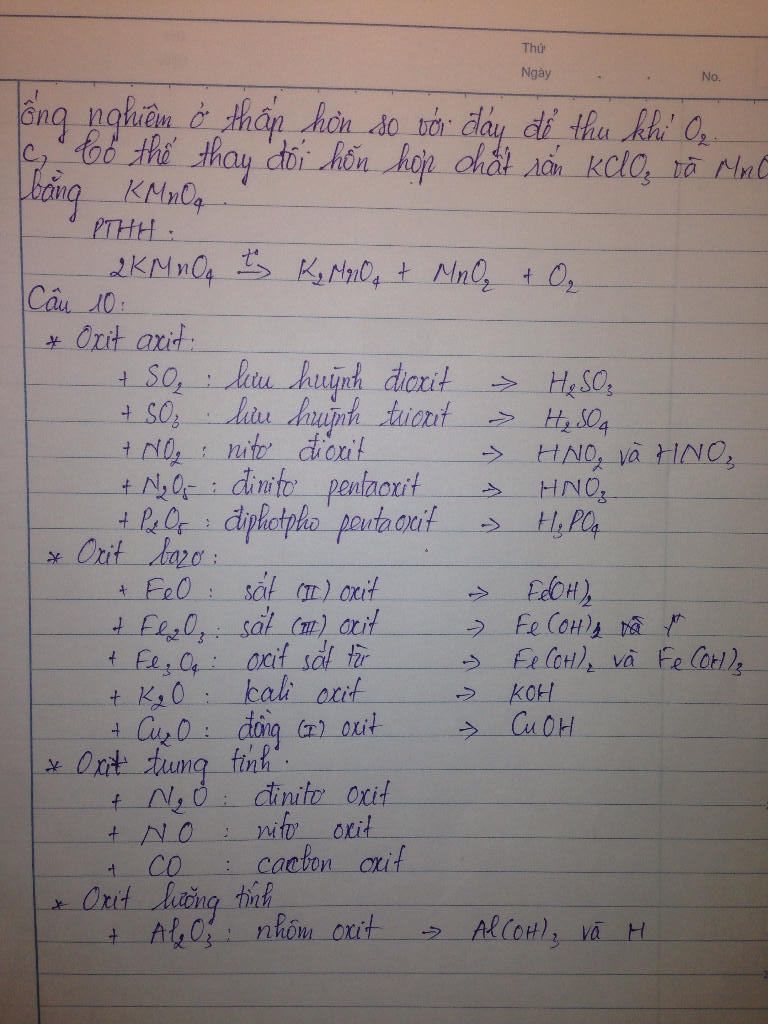 Thứ
Ngày . . No.
ống nghiệm ở thấp hơn so với đáy để thu khí O₂.
c, Có thể thay đổi hỗn hợp chất rắn KClO₃ và MnO
bằng KMnO₄.
PTHH:
2KMnO₄ —t°→ K₂MnO₄ + MnO₂ + O₂
Câu 10:
* Oxit axit:
+ SO₂ : lưu huỳnh đioxit → H₂SO₃
+ SO₃ : lưu huỳnh trioxit → H₂SO₄
+ NO₂ : nitơ đioxit → HNO₂ và HNO₃
+ N₂O₅ : đinitơ pentaoxit → HNO₃
+ P₂O₅ : điphotpho pentaoxit → H₃PO₄
* Oxit bazơ:
+ FeO : sắt (II) oxit → Fe(OH)₂
+ Fe₂O₃ : sắt (III) oxit → Fe(OH)₂
+ Fe₃O₄ : oxit sắt từ → Fe(OH)₂ và Fe(OH)₃
+ K₂O : kali oxit → KOH
+ Cu₂O : đồng (I) oxit → CuOH
* Oxit trung tính.
+ N₂O : đinitơ oxit
+ NO : nitơ oxit
+ CO : cacbon oxit
* Oxit lưỡng tính
+ Al₂O₃ : nhôm oxit → Al(OH)₃ và H